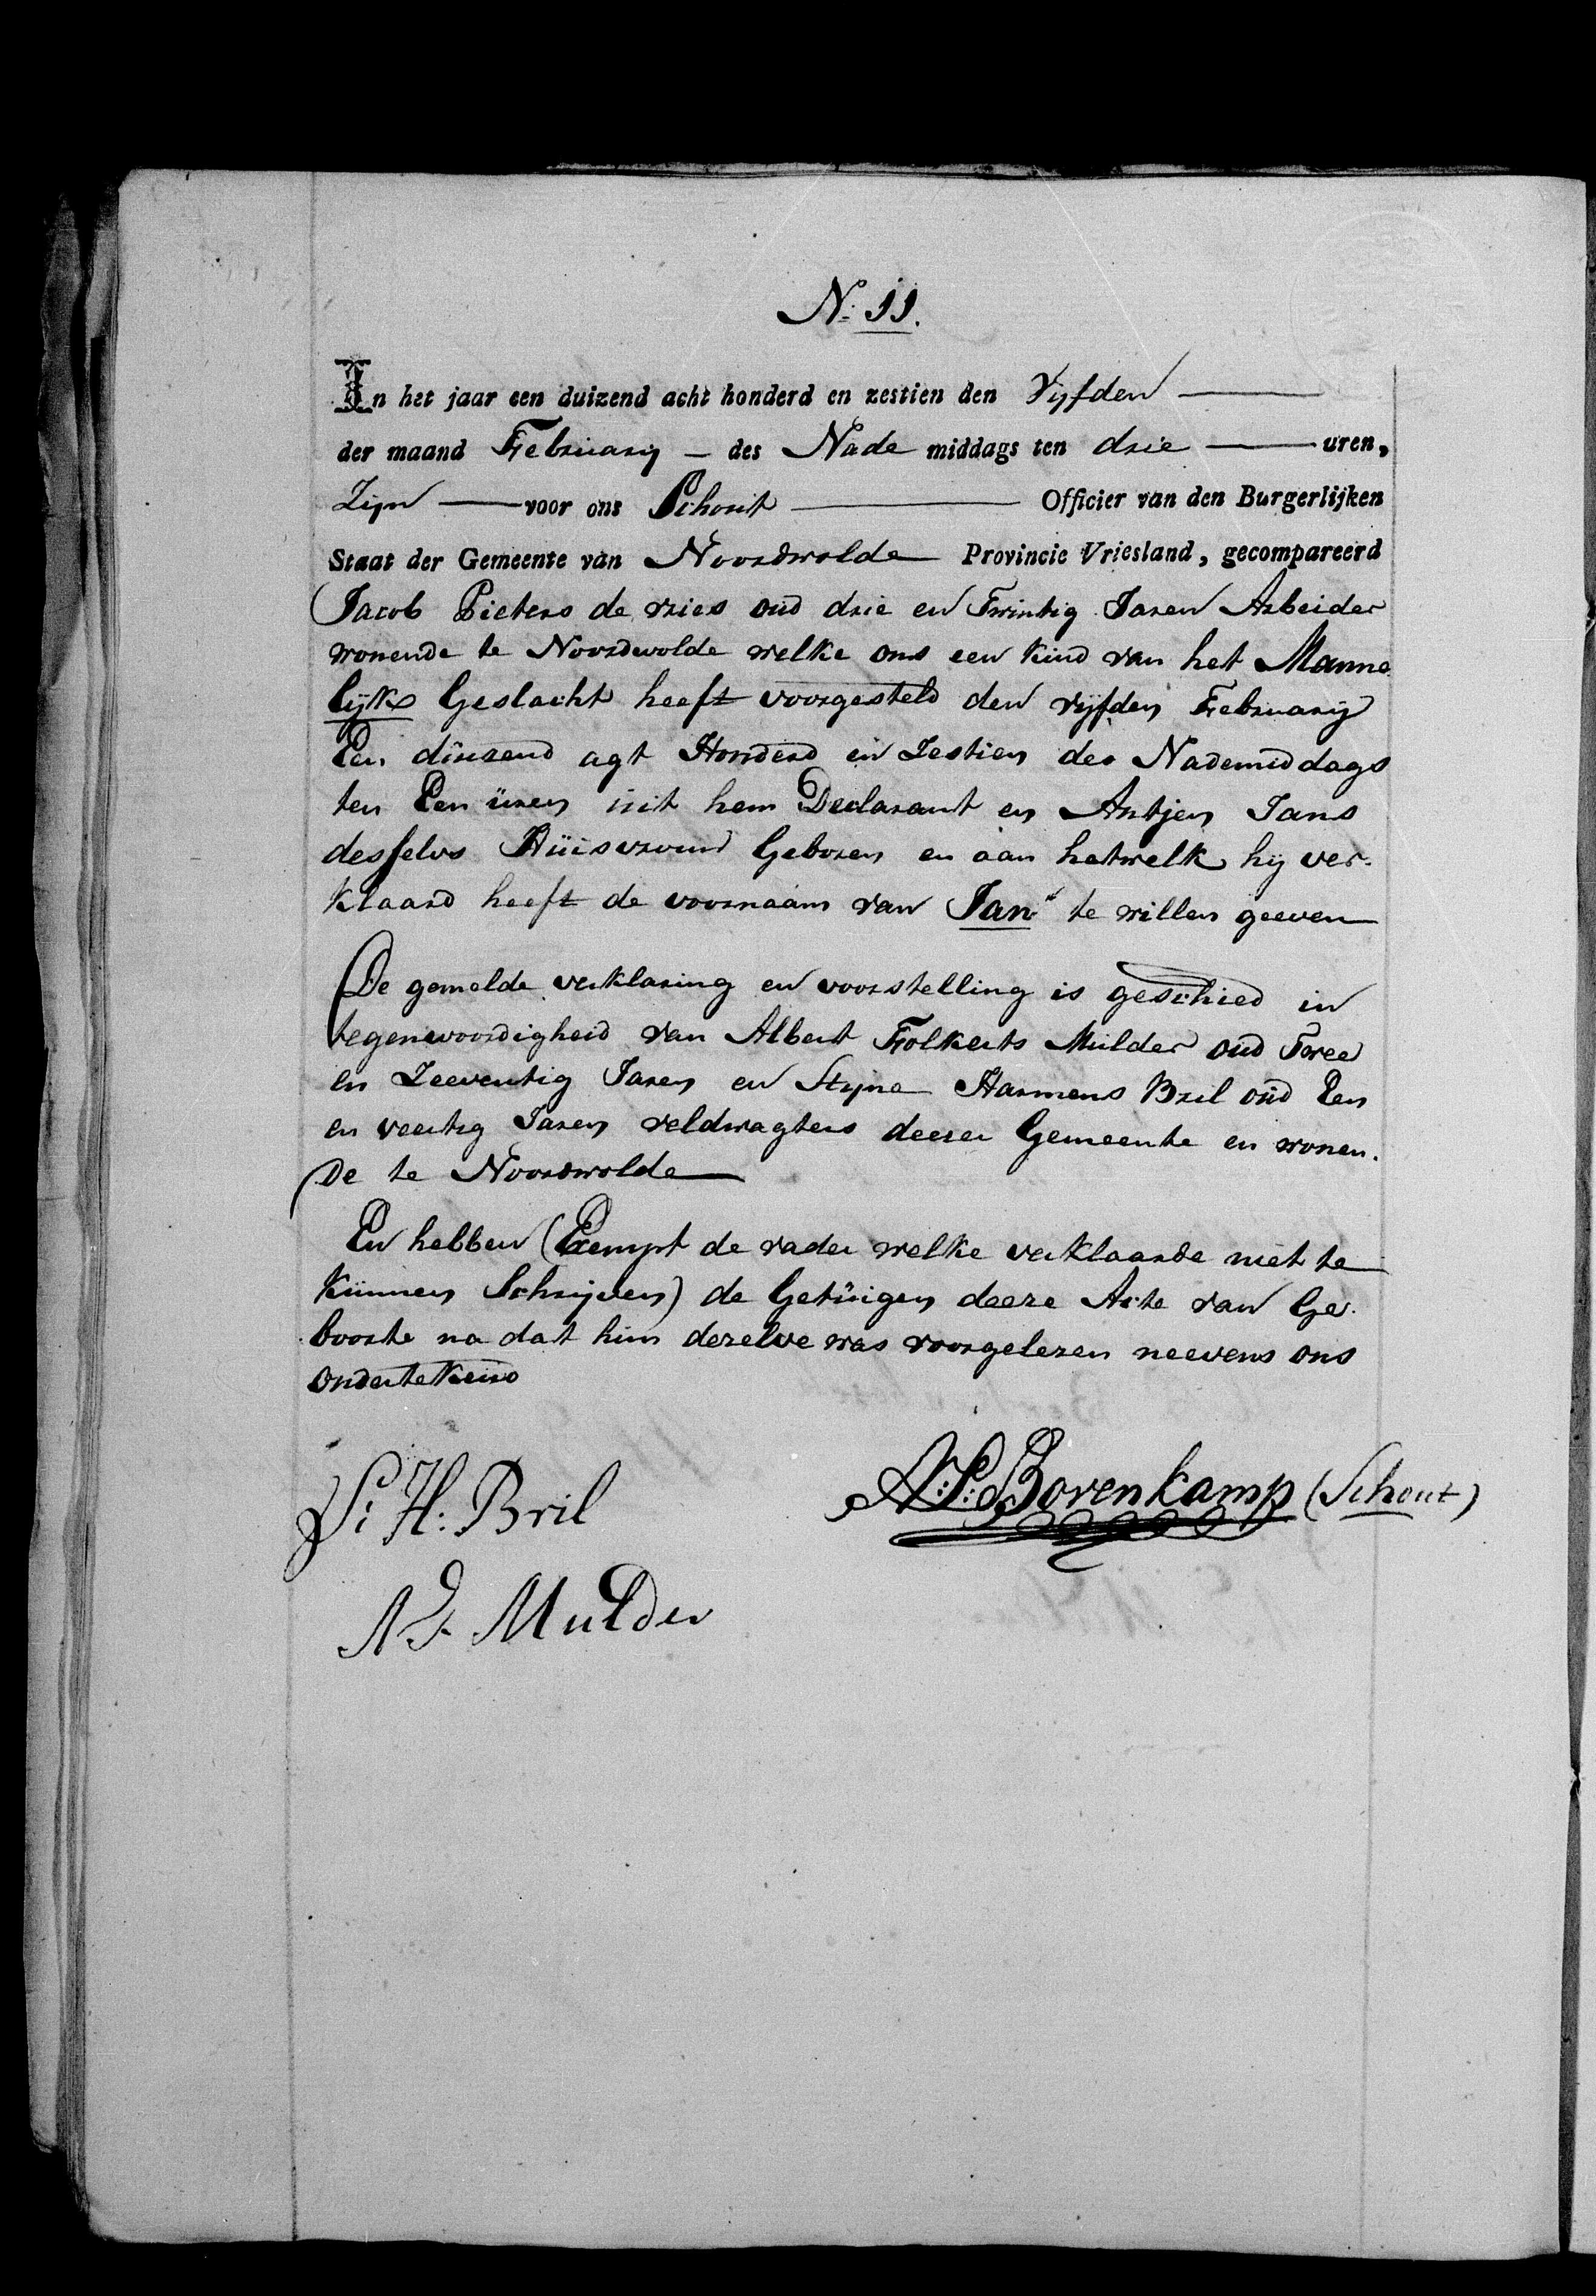 N: 11.
In het jaar een duizend acht honderd en zestien den Vyfden
der maand February – des Nade middags ten drie uren,
Zijn voor ons Schout Officier van den Burgerlijken
Staat der Gemeente van Noordwolde Provincie Vriesland, gecompareerd
Jacob Pieters de vries oud drie en Twintig Jaren Arbeider
wonende te Noordwolde welke ons een kind van het Manne
lijke Geslacht heeft voorgesteld den vyfden February
Een duizend agt Honderd en Zestien des Nademiddags
ten Een uren uit hem Declarant en Antjen Jans
desselvs Huisvrouw Geboren en aan hetwelk hy ver-
klaard heeft de voornaam van Jan te willen geeven
De gemelde verklaring en voorstelling is geschied in
tegenwoordigheid van Albert Folkerts Mulder oud Twee
en Zeeventig Jaren en Styne Harmens Bril oud Een
en veertig Jaren veldwagters deezer Gemeente en wonen-
de te Noordwolde
En hebben (Exempt de vader welke verklaarde niet te
kunnen Schrijven) de Getuigen deeze Acte van Ge-
boorte na dat hun dezelve was voorgelezen neevens ons
ondertekend
S: H: Bril
A: P: Bovenkamp (Schout)
A F Mulder